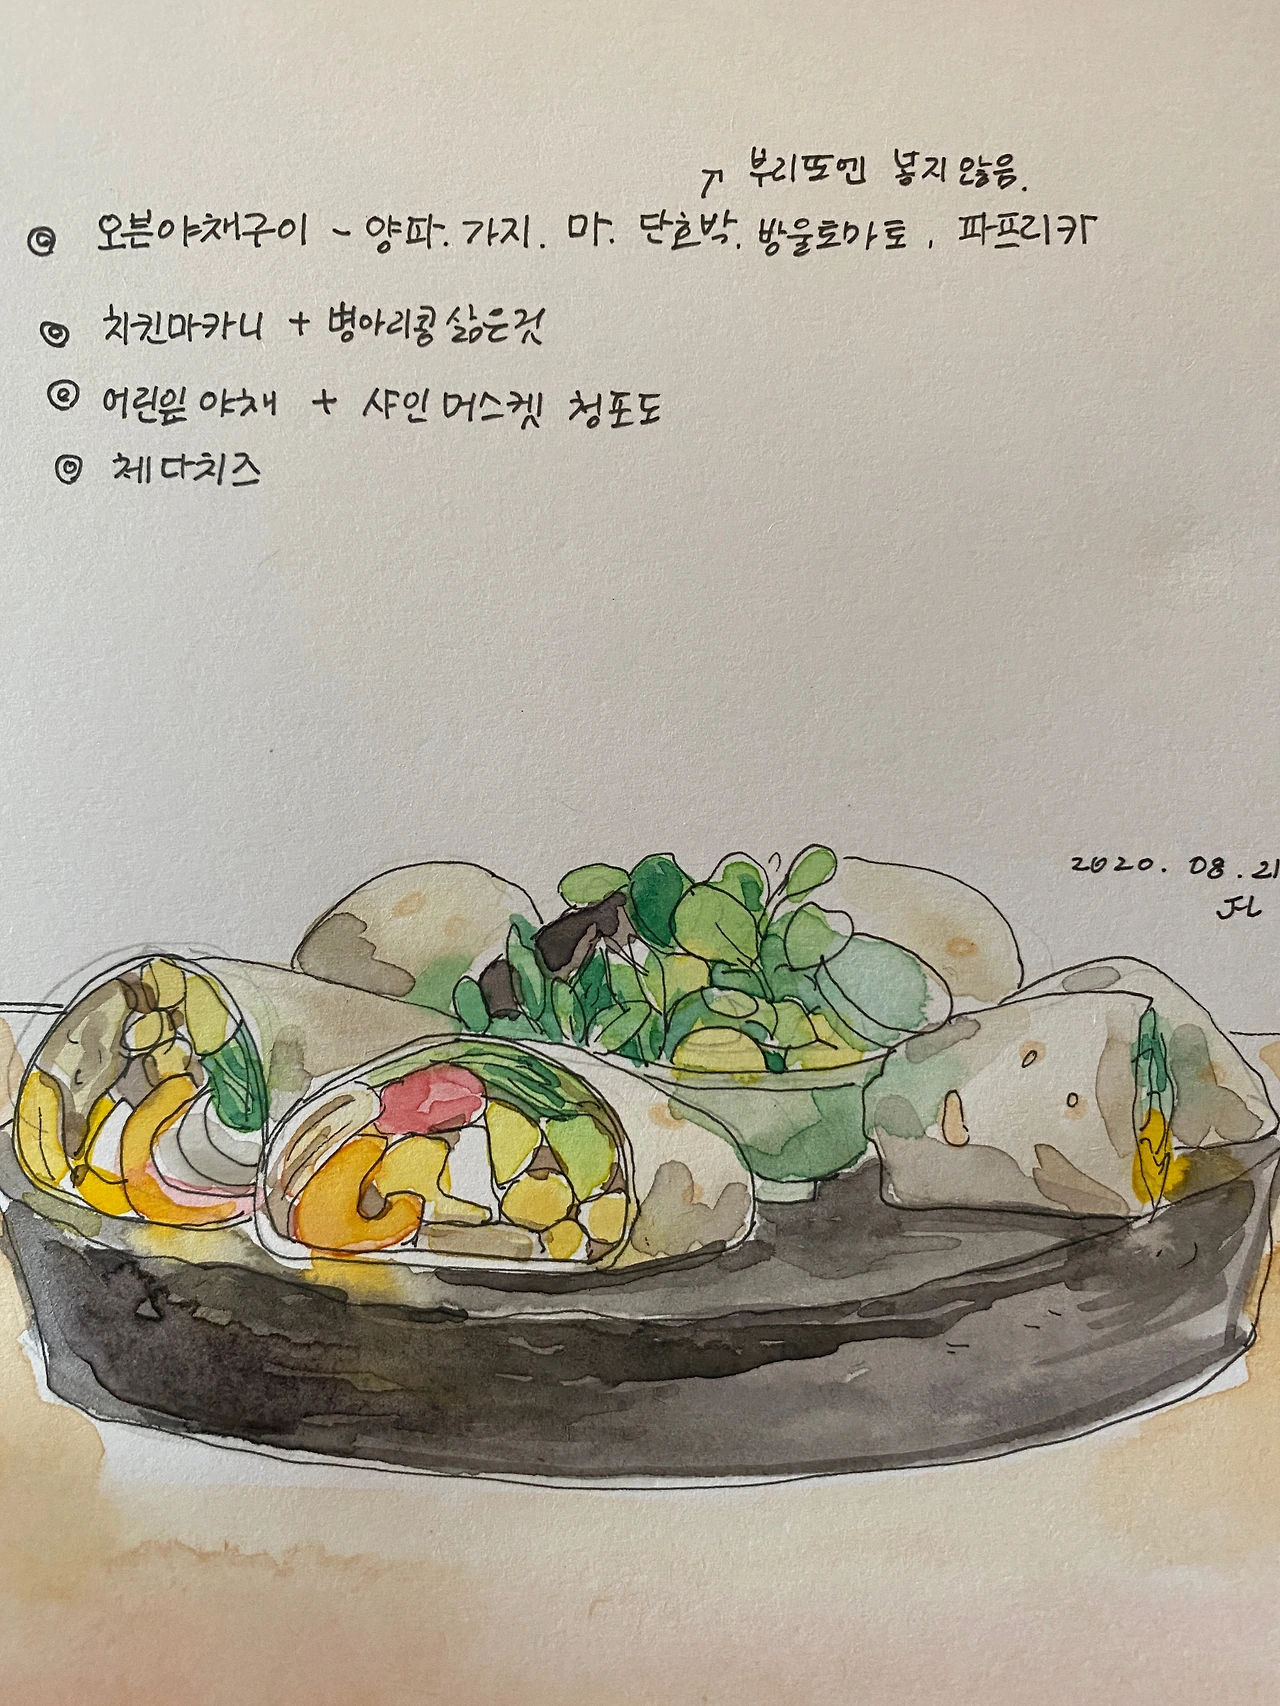 ↗ 부리또엔 넣지 않음.
◎ 오븐야채구이 - 양파. 가지. 마. 단호박. 방울토마토, 파프리카
◎ 치킨마카니 + 병아리콩 삶은것
◎ 어린잎 야채 + 샤인머스켓 청포도
◎ 체다치즈
2020. 08. 21